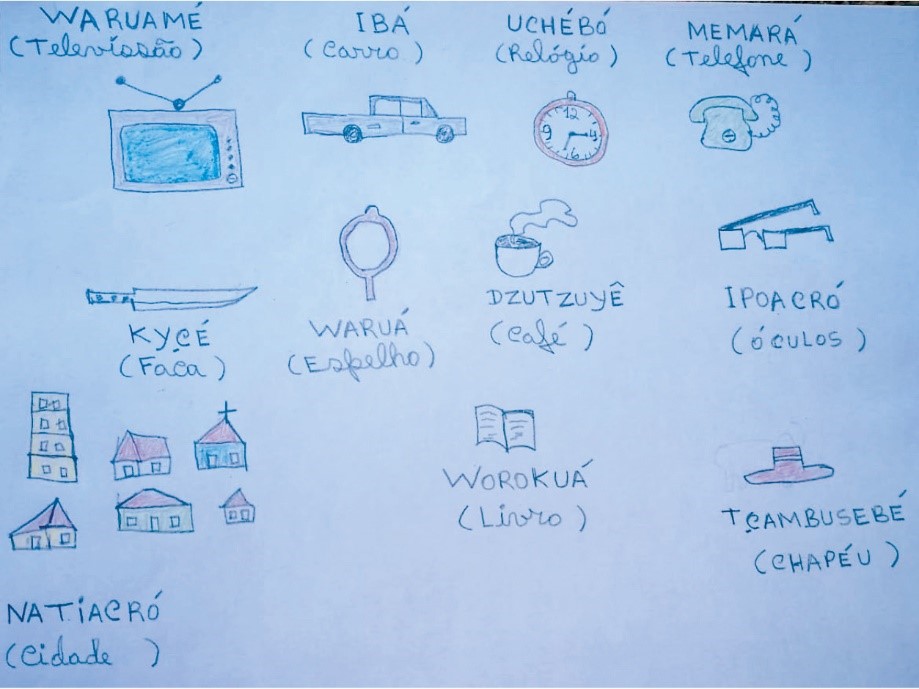 WARUAMÉ
(Televissão)
IBÁ
(Carro)
UCHÉBÓ
(Relógio)
MEMARÁ
(Telefone)
12
9
3
6
KYÇÉ
(Faca)
WARUÁ
(Espelho)
DZUTZUYÊ
(Café)
IPOACRÓ
(ÓCULOS)
WOROKUÁ
(Livro)
TÇAMBUSEBÉ
(CHAPÉU)
NATIACRÓ
(Cidade)